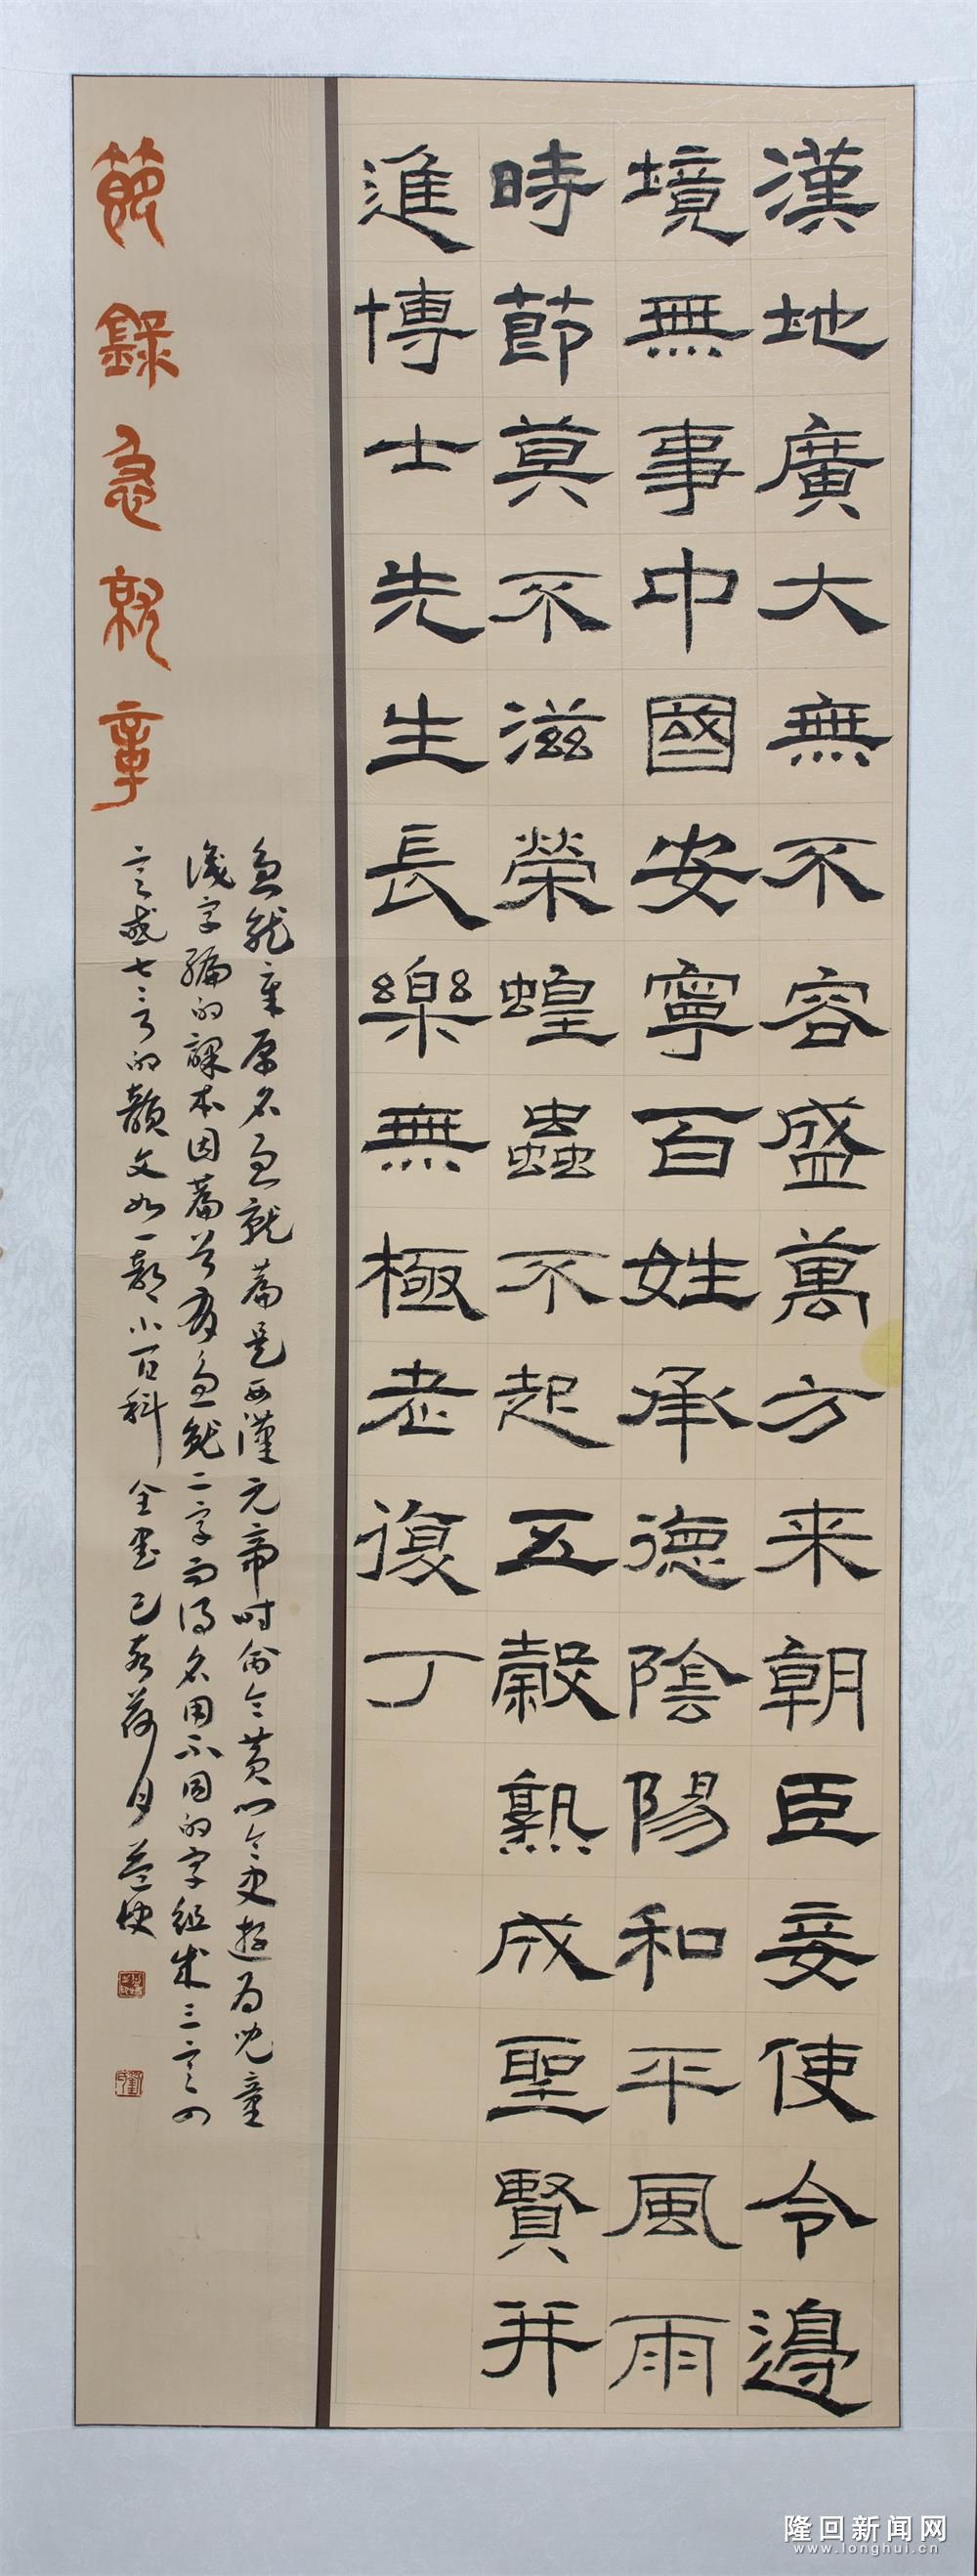 漢地廣大無不容盛萬方来朝臣妾使令邊
境無事中國安寧百姓承德陰陽和平風雨
時節莫不滋榮蝗蟲不起五穀熟成聖賢并
進博士先生長樂無極老復丁
節錄急就章
急就章原名急就篇是西漢元帝時命令黄門令史游為兒童
識字編的課本因篇首有急就二字而得名用不同的字組成三言四
言或七言的韻文如一部小百科全書己亥荷月
隆回新闻网
www.longhui.cn